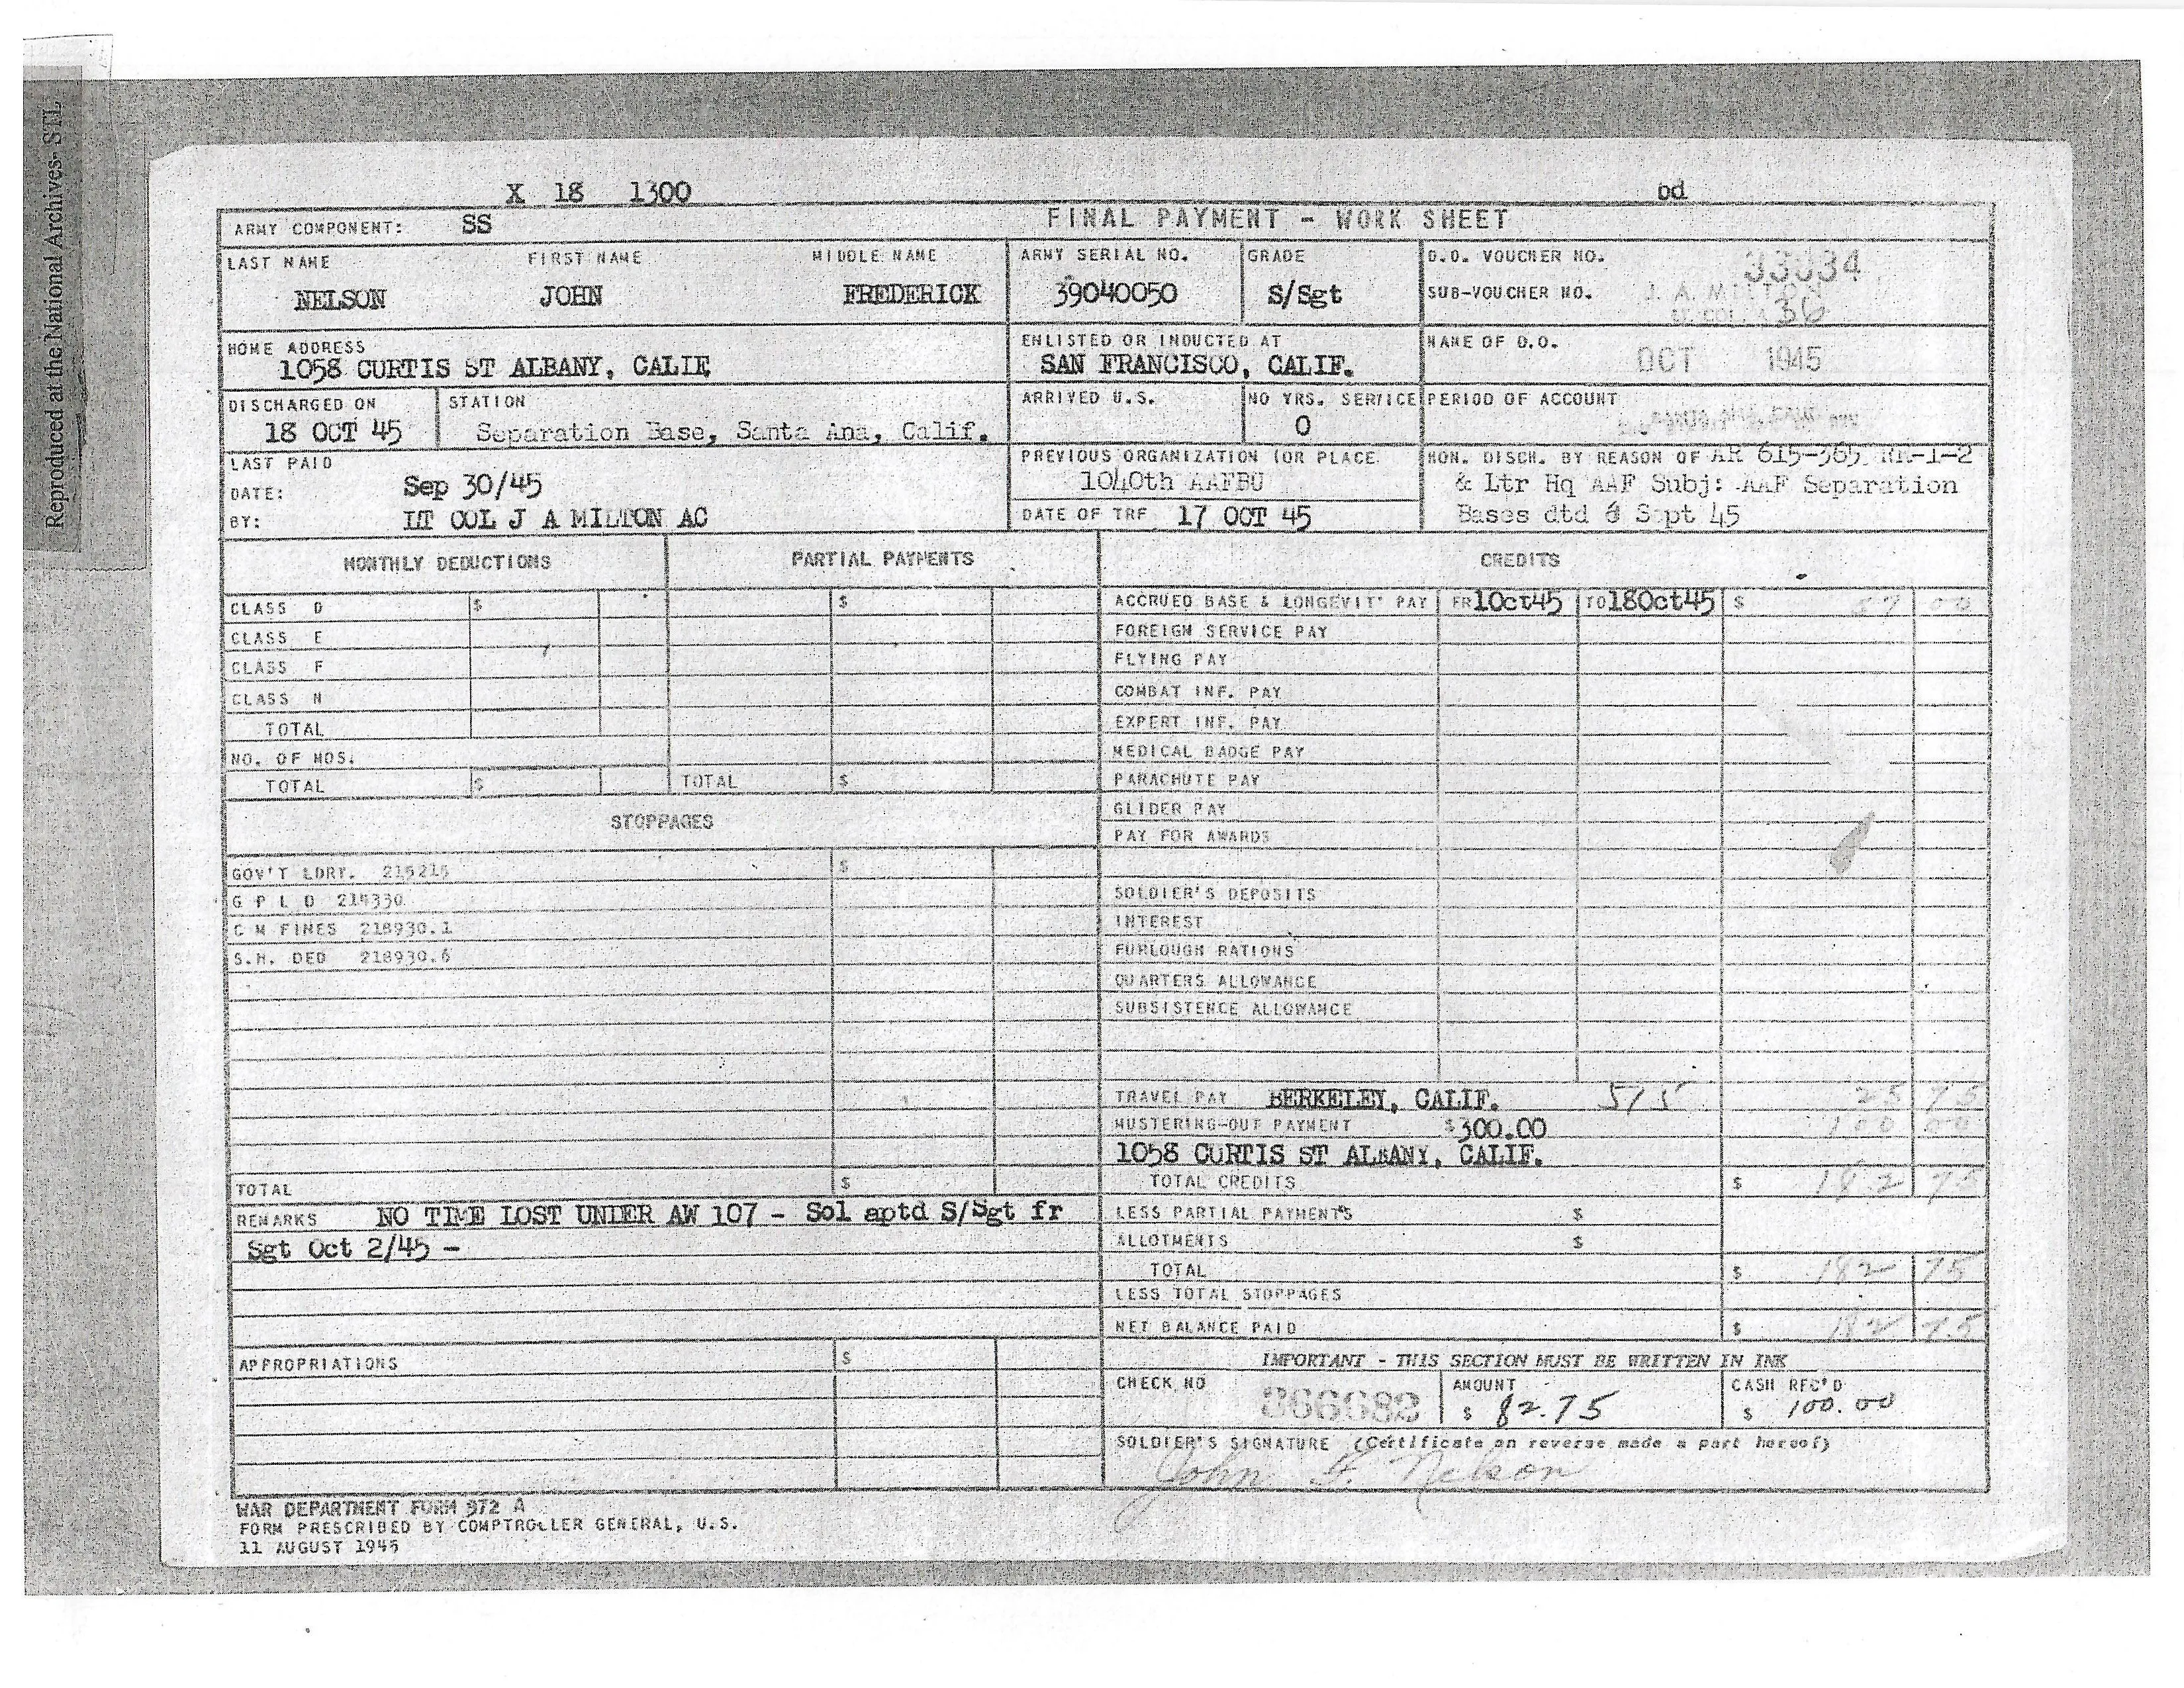 Reproduced at the National Archives- STL
X 18 1300
od
ARMY COMPONENT: SS
FINAL PAYMENT - WORK SHEET
LAST NAME FIRST NAME MIDDLE NAME
NELSON JOHN FREDERICK
ARMY SERIAL NO.
39040050
GRADE
S/Sgt
D.O. VOUCHER NO. 33334
SUB-VOUCHER NO. J. A.
LT. COL. 36
HOME ADDRESS
1058 CURTIS ST ALBANY, CALIF
ENLISTED OR INDUCTED AT
SAN FRANCISCO, CALIF.
NAME OF D.O.
OCT 1945
DISCHARGED ON
18 OCT 45
STATION
Separation Base, Santa Ana, Calif.
ARRIVED U.S.
NO YRS. SERVICE
0
PERIOD OF ACCOUNT
LAST PAID
DATE: Sep 30/45
BY: LT COL J A MILTON AC
PREVIOUS ORGANIZATION (OR PLACE
1040th AAFBU
DATE OF TRF 17 OCT 45
HON. DISCH. BY REASON OF AR 615-365 RR-1-2
& Ltr Hq AAF Subj: AAF Separation
Bases dtd 6 Sept 45
MONTHLY DEDUCTIONS
CLASS D $
CLASS E
CLASS F
CLASS N
TOTAL
NO. OF MOS.
TOTAL $
PARTIAL PAYMENTS
$
TOTAL $
STOPPAGES
GOV'T LDRY. 215215 $
G P L D 219330
C M FINES 218930.1
S.H. DED 218930.6
TOTAL $
REMARKS NO TIME LOST UNDER AW 107 - Sol aptd S/Sgt fr
Sgt Oct 2/45 -
APPROPRIATIONS $
CREDITS
ACCRUED BASE & LONGEVIT' PAY FR 1Oct45 TO 18Oct45 $ 57 00
FOREIGN SERVICE PAY
FLYING PAY
COMBAT INF. PAY
EXPERT INF. PAY
MEDICAL BADGE PAY
PARACHUTE PAY
GLIDER PAY
PAY FOR AWARDS
SOLDIER'S DEPOSITS
INTEREST
FURLOUGH RATIONS
QUARTERS ALLOWANCE
SUBSISTENCE ALLOWANCE
TRAVEL PAY BERKELEY, CALIF. 515 25 75
MUSTERING-OUT PAYMENT $300.00 100 00
1058 CURTIS ST ALBANY, CALIF.
TOTAL CREDITS $ 182 75
LESS PARTIAL PAYMENTS $
ALLOTMENTS $
TOTAL $ 182 75
LESS TOTAL STOPPAGES
NET BALANCE PAID $ 182 75
IMPORTANT - THIS SECTION MUST BE WRITTEN IN INK
CHECK NO 366682
AMOUNT
$ 82.75
CASH REC'D
$ 100.00
SOLDIER'S SIGNATURE (Certificate on reverse made a part hereof)
John F. Nelson
WAR DEPARTMENT FORM 372 A
FORM PRESCRIBED BY COMPTROLLER GENERAL, U.S.
11 AUGUST 1945